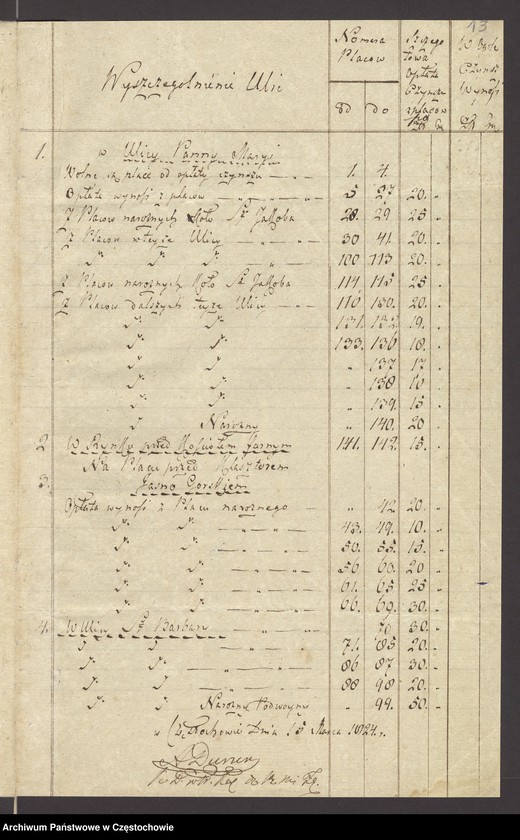 13
Wyszczególnienie Ulic
Numera Placow
od do
Szczegółowa Opłata Czynszu z placow
W Ogóle Czynsz Wynosi
1. w Ulicy Panny Maryi
Wolne są place od opłaty czynszu 1. 4.
Opłata wynosi z placu 5 27 20.
Z Placow narożnych koło Sgo Jakóba 28. 29 25
Z Placow w teyże Ulicy 30 41. 20.
100 113 20.
Z Placow narożnych koło Sgo Jakóba 114. 115 25
Z Placow dalszych teyże Ulicy 116 130. 20.
131. 132 19.
133. 136 18.
" 137 17
" 138 16
" 139. 15
Narożny " 140. 20
2 W Rynku przed Kościołem Farnym 141. 142. 15.
3. Na Placu przed Klasztorem
Jasno Gorskiem
Opłata wynosi z Placu narożnego " 42 20.
43. 49. 10.
50. 55. 15
56 60. 20
61. 65 25
66. 69. 30.
4. W Ulicy Sty Barbary 70 30.
71. 85 20
86 87 30.
88 98 20.
Narożny podwoyny " 99. 50.
w Częstochowie Dnia 15 Marca 1824. r.
Archiwum Państwowe w Częstochowie